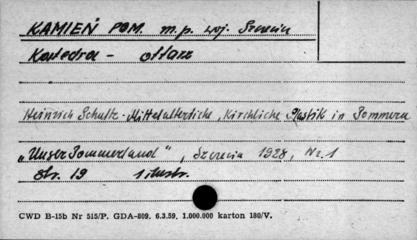 KAMIEŃ POM. m.p. woj. Szczecin
Katedra - ołtarz
Heinrich Schultz - Mittelalterliche, Kirchliche Plastik in Pommern
„Unser Pommerland", Szczecin 1928, Nr. 1
str. 19 1 ilustr.
CWD B-15b Nr 515/P. GDA-809. 6.3.59. 1.000.000 karton 180/V.